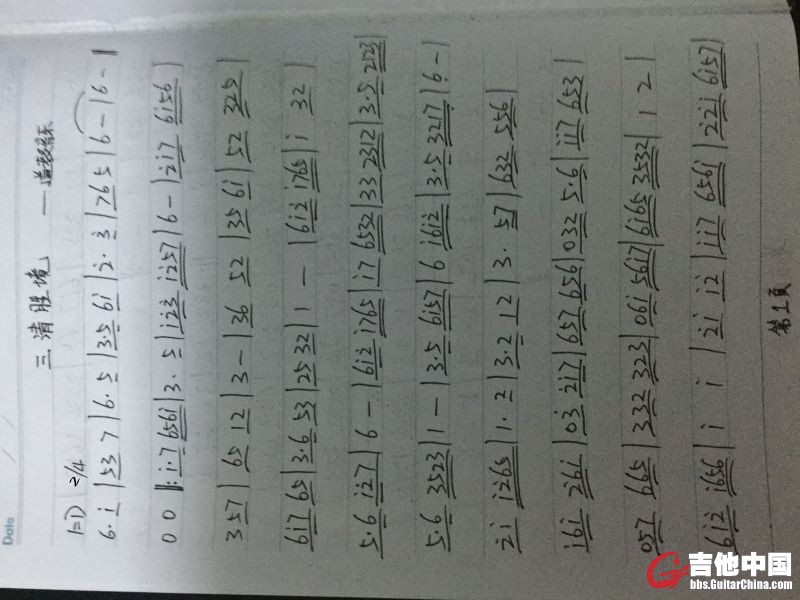 Date
三清胜境 — 道教音乐
1=D 2/4
6· i | 53 7 | 6· 5 | 3·5 6i | 2· 3 | 765 | 6 - | 6 - |
0 0 ‖: i·7 656i | 3· 5 | i23 i257 | 6 - | 2i7 6156 |
357 | 65 12 | 3 - | 36 52 | 35 6i | 52 325 |
6i7 65 | 3·6 53 | 25 32 | 1 - | 6i2 i765 | i 32 |
5·6 i27 | 6 - | 6i2 1765 | i7 6532 | 33 2312 | 3·5 2123 |
5·6 3523 | 1 - | 3·5 6157 | 6 i6i2 | 3·5 3217 | 6 - |
2i i265 | 1· 2 | 3·2 12 | 3· 57 | 632 556 |
i6i 26i | 03 2i7 | 657 656 | 032 5·6 | ii7 653 |
057 665 | 332 323 | 06i 56i7 | 6i65 3532 | 1 2 |
6i2 i656 | i i | 2i i2 | ii7 656i | 22i 6157 |
第1頁
吉他中国
bbs.GuitarChina.com